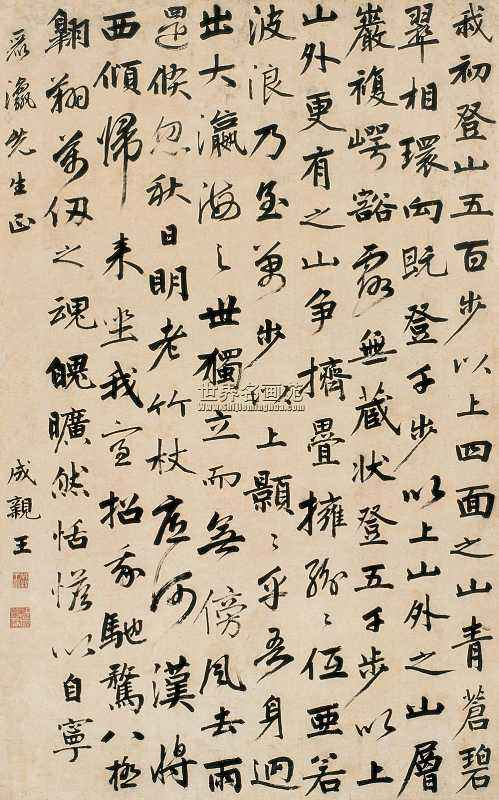 我初登山五百步以上四面之山青蒼碧
翠相環向既登千步以上山外之山層
巖複崿豁露無藏狀登五千步以上
山外更有之山爭擠疊擁紛〻伍亞若
波浪乃至萬步以上顥〻乎吾身迥
出大瀛海之世獨立而無傍風去雨
還倏忽秋日明老竹杖底河漢將
西傾歸來坐我室招我馳騖八極
翱翔萬仞之魂魄曠然恬憺以自寧
瀛先生正
成親王
世界名画苑
www.shijieminghua.com